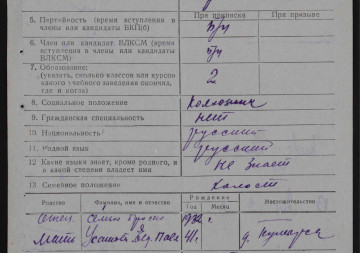 При приписке При призыве
5. Партийность (время вступления в
члены или кандидаты ВКП(б) Б/п
6. Член или кандидат ВЛКСМ (время
вступления в члены или кандидаты
ВЛКСМ) Б/п
7. Образование:
(указать, сколько классов или курсов
какого учебного заведения окончил,
где и когда) 2
8. Социальное положение Колхозник
9. Гражданская специальность нет
10. Национальность русский
11. Родной язык русский
12. Какие языки знает, кроме родного, и
в какой степени владеет ими не знает
13. Семейное положение Холост
Родство Фамилия, имя и отчество Рождение Местожительство
Год Месяц
отец г.
Мать д.